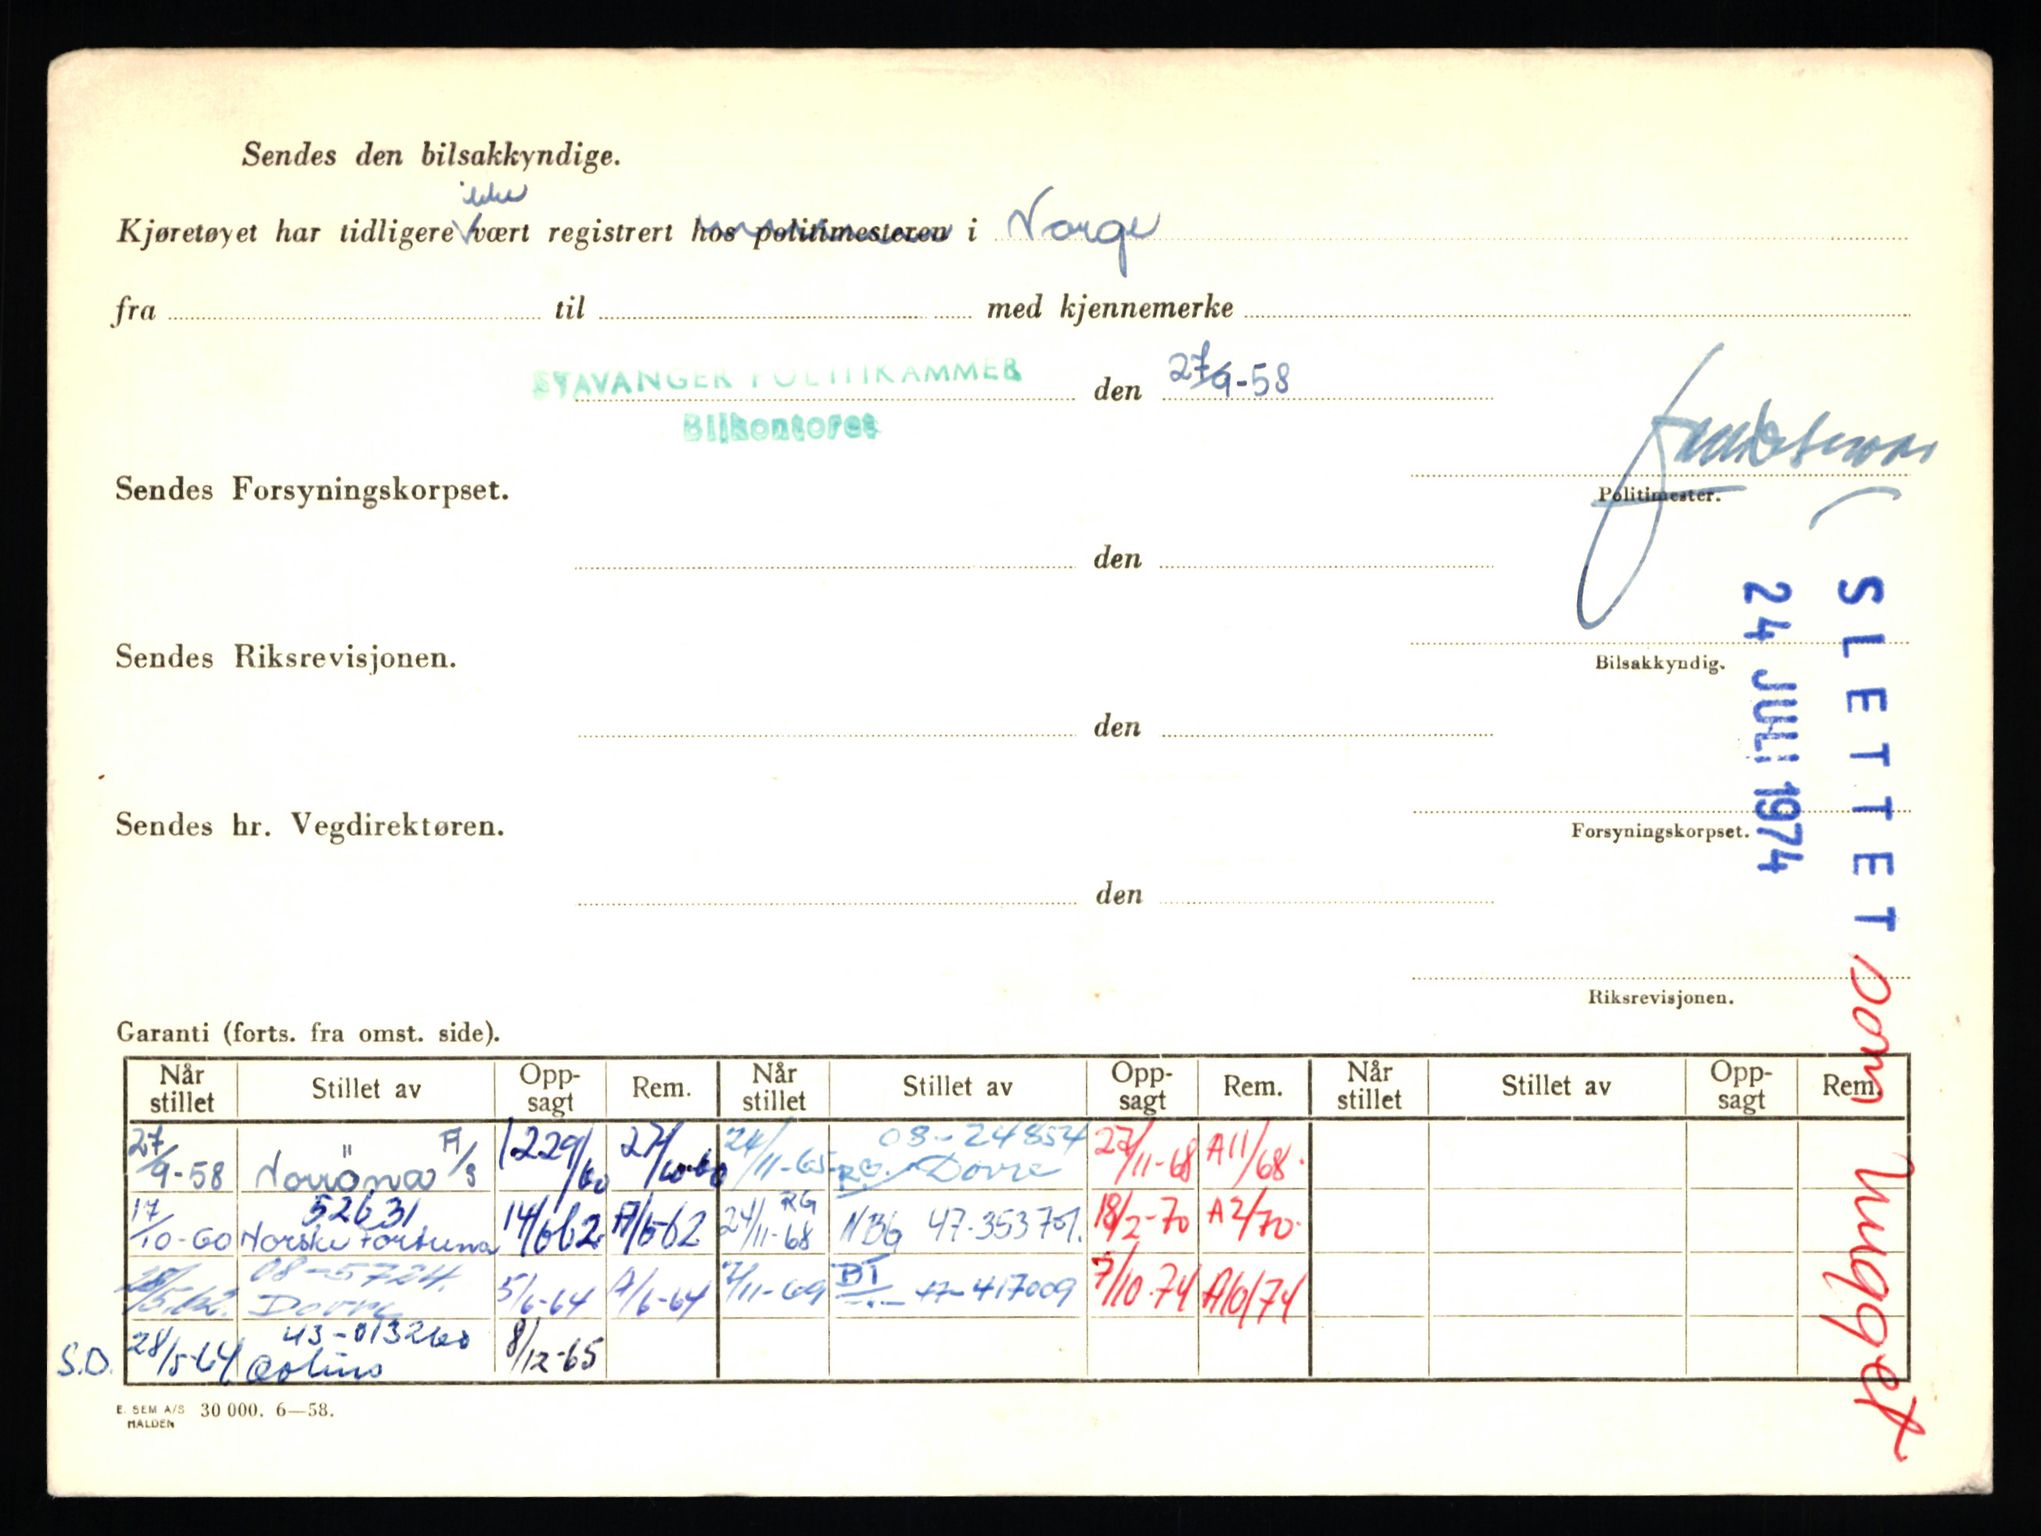 Sendes den bilsakkyndige.
ikke
Kjøretøyet har tidligere vært registrert hos politimesteren i Norge
fra til med kjennemerke
STAVANGER POLITIKAMMER den 27/9-58
Bilkontoret
Sendes Forsyningskorpset.
Politimester.
den
Sendes Riksrevisjonen.
Bilsakkyndig.
den
Sendes hr. Vegdirektøren.
Forsyningskorpset.
den
Riksrevisjonen.
SLETTET som hugget
24 JULI 1974
Garanti (forts. fra omst. side).
Når stillet Stillet av Opp-sagt Rem. Når stillet Stillet av Opp-sagt Rem. Når stillet Stillet av Opp-sagt Rem.
27/9-58 " Norröna A/S 1229/60 27/10-60 24/11-65 08-24854 RG. Dovre 27/11-68 A11/68.
17/10-60 52631 Norske Fortuna 14/6 62 /6-62 24/11-68 RG NBG 47-353701. 18/2-70 A2/70.
/5.62. 08-5724. Dovre 5/6-64 /6-64 /11-69 BI 17-417009 7/10.74 A10/74
S.D. 28/5-64 43-013260 8/12-65
E. SEM A/S 30 000. 6—58.
HALDEN